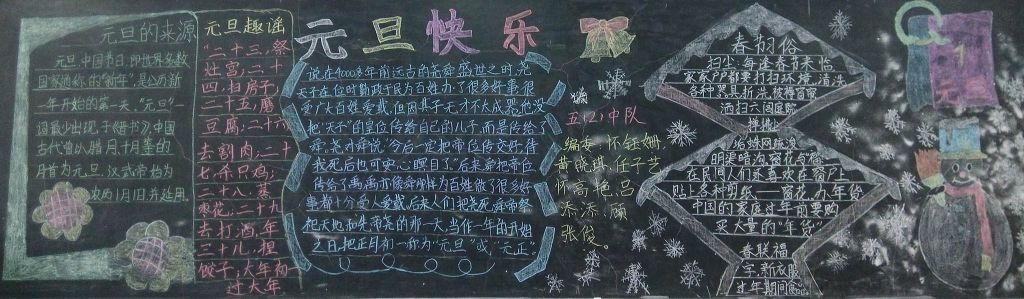 元旦的来源
元旦,中国节日,即世界多数
国家通称的“新年”是公历新
一年开始的第一天。“元旦”一
词最少出现于《晋书》,中国
古代曾以腊月十月等的
月首为元旦。汉武帝始为
农历1月1日,并延用。
元旦趣谣
“二十三,祭
灶宫;二十
四,扫房子;
二十五,磨
豆腐;二十六
去割肉;二十
七,杀只鸡;
二十八,蒸
枣花;二十九
去打酒,年
三十儿,捏
饺子;大年初一
过大年
元旦快乐
说在4000多年前远古的尧舜盛世之时,尧
天子在位时勤政于民为百姓办了很多好事,很
受广大百姓爱戴,但因其子无才不太成器,他没
把“天子”的皇位传给自己的儿子,而是传给了
舜,尧对舜说“今后一定把帝位传交好,待
我死后也可安心瞑目了。”后来舜把帝位
传给了禹,禹亦像舜那样为百姓做了很多好
事都十分受人爱戴,后来人们把尧死舜帝祭
祀天地和先帝尧的那一天,当作一年的开始
之日,把正月初一称为“元旦”或“元正”
五(2)中队
编委:怀钰姗
黄晓琪,任子艺
怀高艳,吕
添添,顾
张俊。
春节习俗
扫尘:每逢春节来临
家家户户都要打扫环境,清洗
各种器具,拆洗被褥窗帘
洒扫六闾庭院
掸拂
蛛网
明渠暗沟 窗花与福
在民间人们还喜欢在窗户上
贴上各种剪纸——窗花。办年货
中国的家庭过年前要购
买大量的“年货”
春联福
字,新衣服
过年期间
1